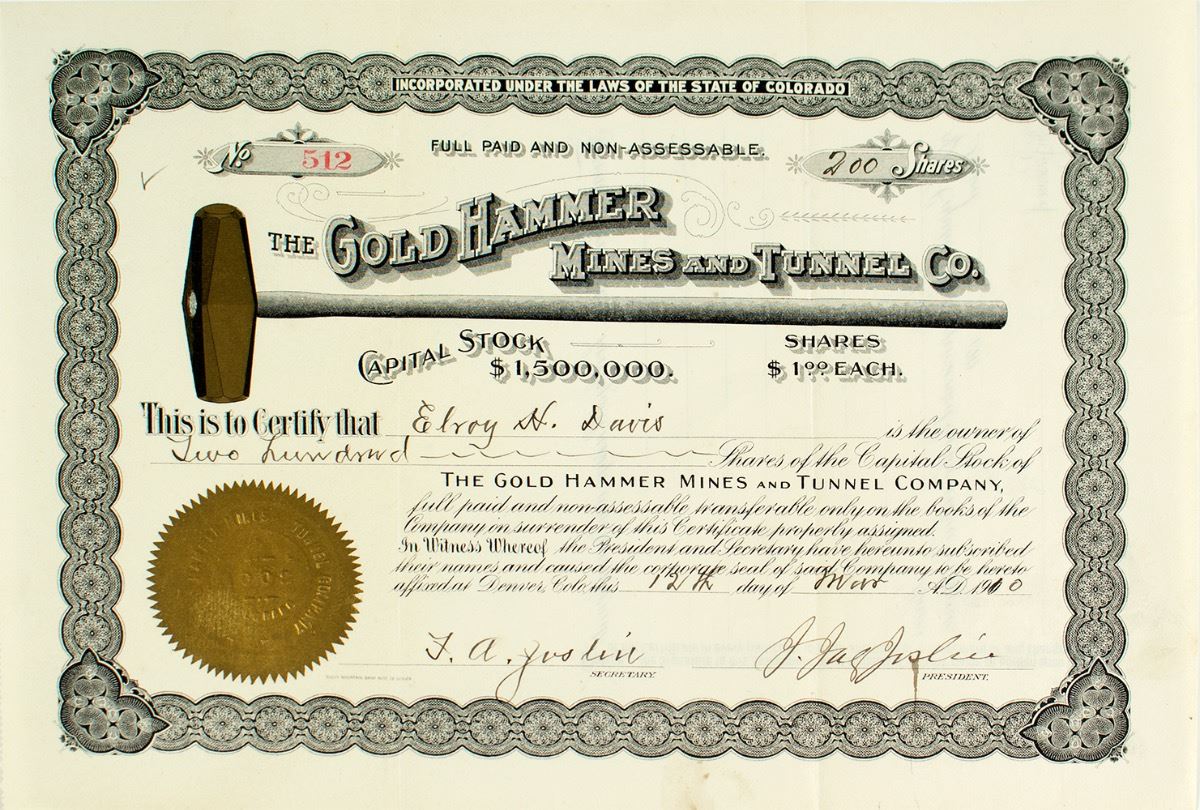 INCORPORATED UNDER THE LAWS OF THE STATE OF COLORADO
No 512
FULL PAID AND NON-ASSESSABLE.
200 Shares
THE GOLD HAMMER
MINES AND TUNNEL CO.
CAPITAL STOCK
$1,500,000.
SHARES
$1.00 EACH.
This is to Certify that Elroy H. Davis is the owner of
Two hundred Shares of the Capital Stock of
THE GOLD HAMMER MINES AND TUNNEL COMPANY,
full paid and non-assessable transferable only on the books of the
Company on surrender of this Certificate properly assigned.
In Witness Whereof the President and Secretary have hereunto subscribed
their names and caused the corporate seal of said Company to be hereto
affixed at Denver, Colo. this 12th day of Mar A.D. 1910
F. A. Joslin
SECRETARY.
J. Jay Joslin
PRESIDENT.